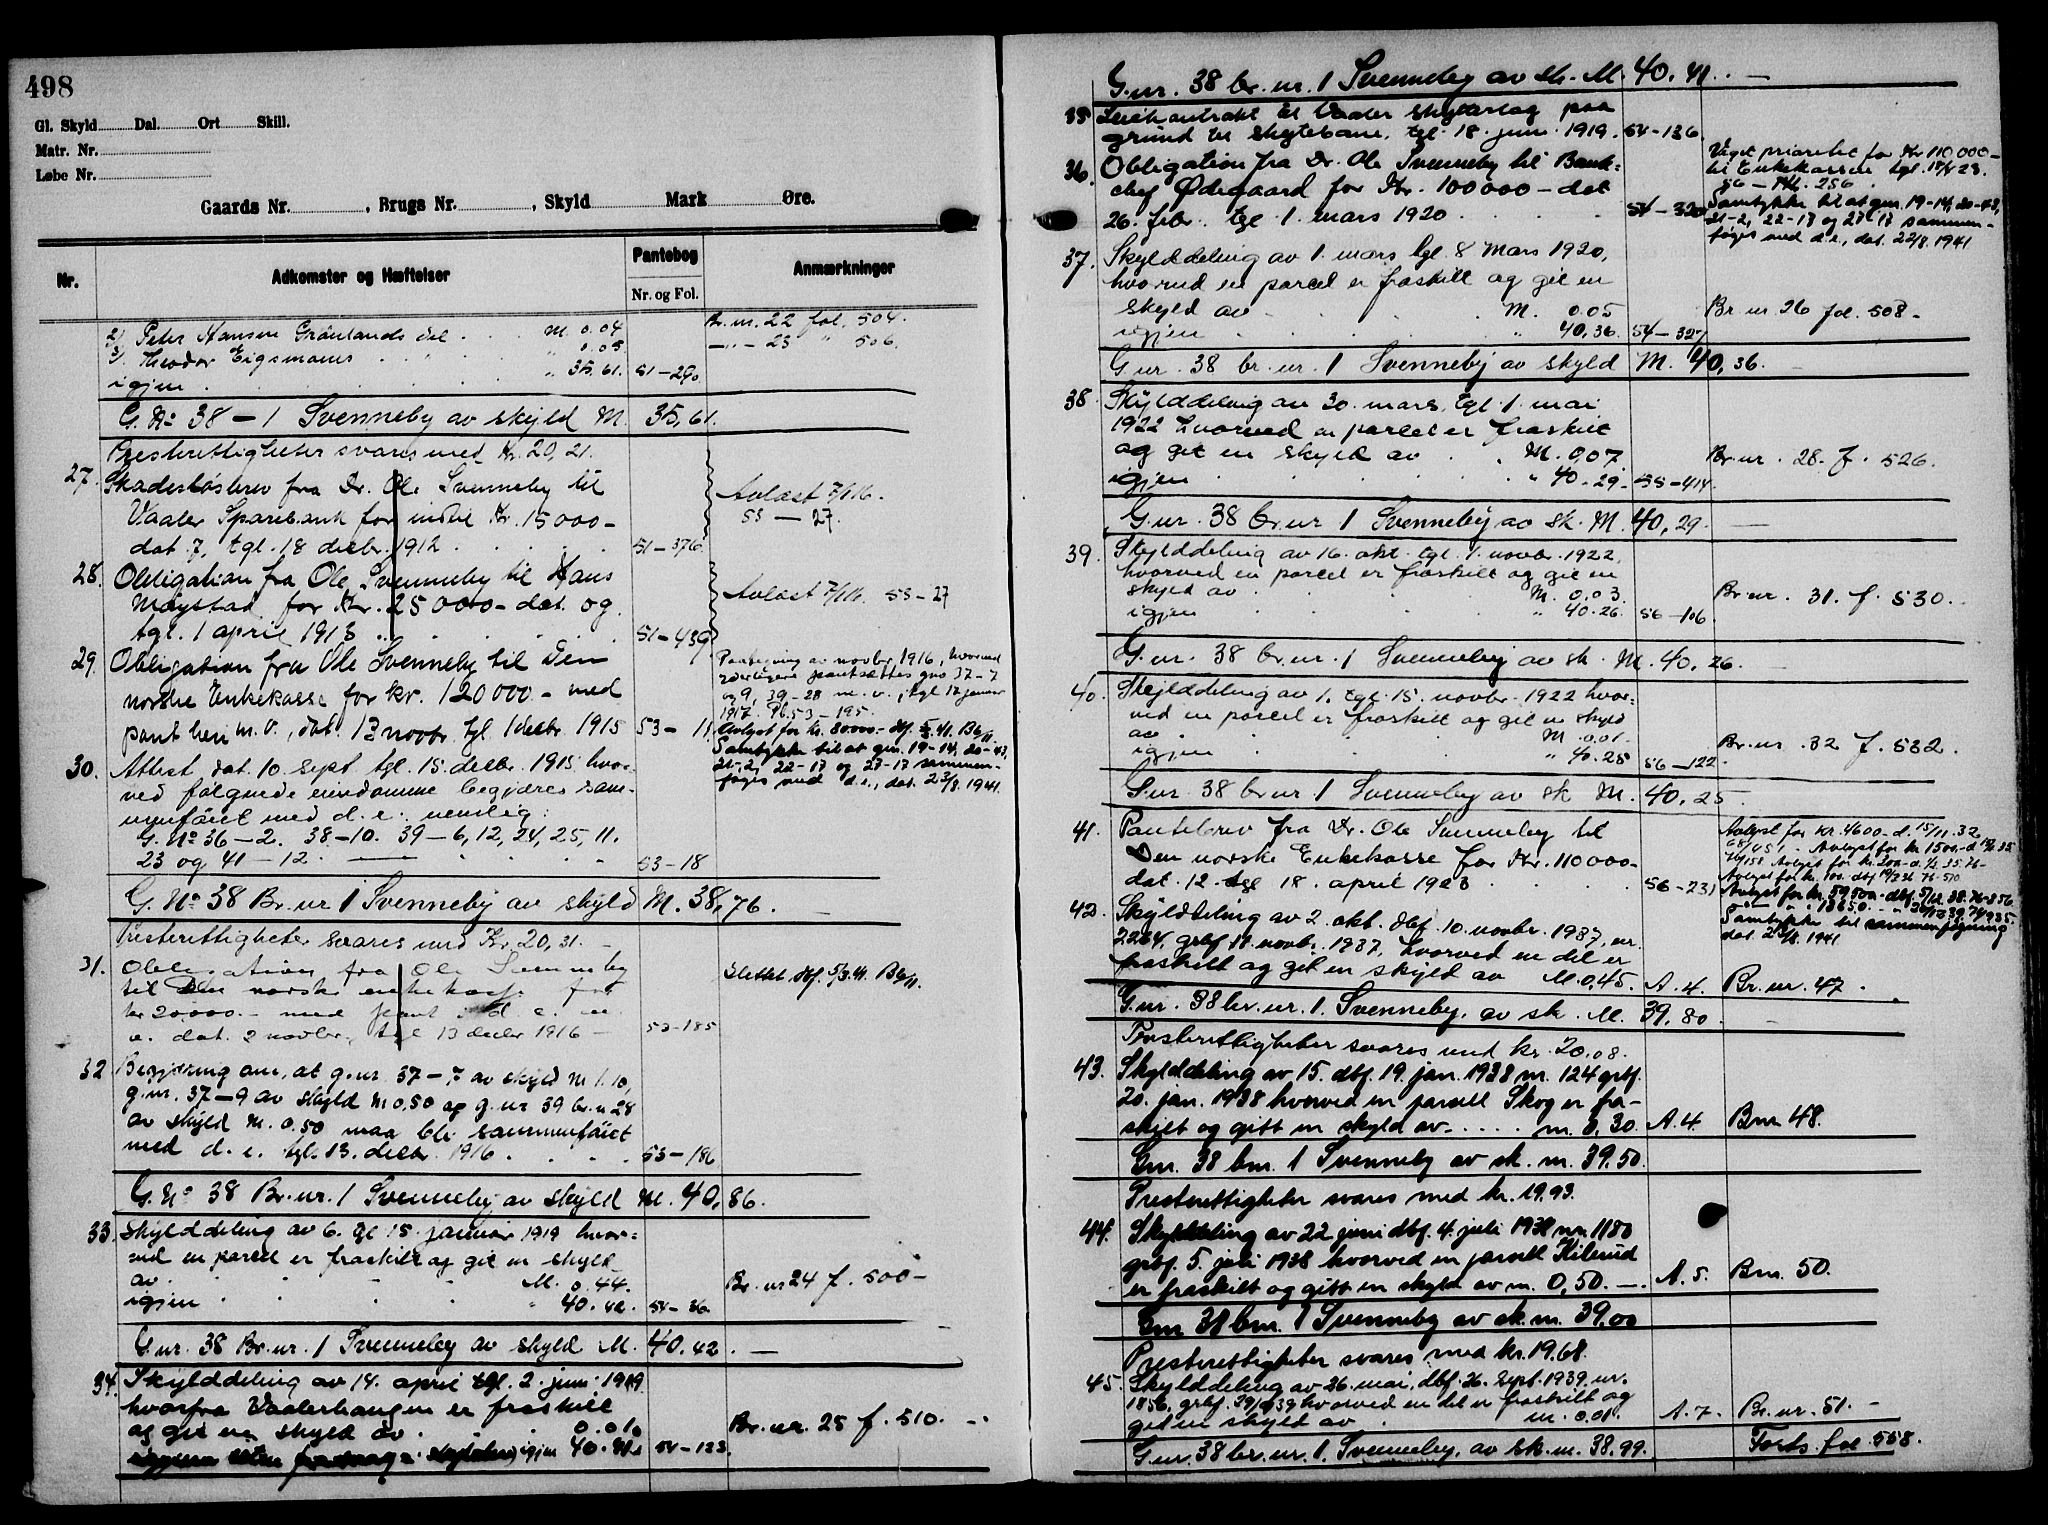 498
Gl. Skyld Dal. Ort Skill.
Matr. Nr.
Løbe Nr.
Gaards Nr. , Brugs Nr. , Skyld Mark Øre.
Nr. Adkomster og Hæftelser Pantebog Anmærkninger
Nr. og Fol.
2/ Peter Hansen Grönlands del M. 0.04 Br. nr. 22 fol. 504.
3/ Theodor Eigsmoens " 0.05 —"— 23 " 506.
igjen " 35.61. 51–290
G. No 38 – 1 Svenneby av skyld M. 35,61.
Presterettigheter svares med Kr. 20,21.
27. Skadesløsbrev fra Dr. Ole Svenneby til
Vaaler Sparebank for indtil Kr. 15000–
dat. 7, tgl. 18 decbr. 1912 51–376
Avlæst 7/1 16.
53 – 27.
28. Obligation fra Ole Svenneby til Hans
Møystad for Kr. 25000– dat. og
tgl. 1 april 1913 51–439
Avlæst 7/1 16. 53–27
29. Obligation fra Ole Svenneby til Den
norske Enkekasse for kr. 120000– med
pant heri m. v., dat. 12 novbr. tgl. 1 decbr. 1915 53–11
novbr. 1916, hvorved
pantsættes gno 37–7
og 9, 39–28 m. v., tgl 12 januar
1917. Pb. 53–195.
Avlyst for kr. 80000.– dbf. 5/3 41. B6/11
Samtykke til at gnr. 19–14, 20–43,
21–2, 22–17 og 27–17 sammen-
føges med d. e., dat. 23/8 1941.
30. Attest dat. 10. sept. tgl. 15. decbr. 1915 hvor-
ved følgende eiendomme begjæres sam-
menføiet med d. e. nemlig:
G. No 36–2. 38–10. 39–6, 12, 24, 25, 11.
23 og 41–12. 53–18
G. No 38 Br. nr 1 Svenneby av skyld M. 38,76.
Presterettigheter svares med Kr. 20,31.
31. Obligation fra Ole Svenneby
til Den norske enkekasse for
kr 20.000.– med pant i d. e. m.
v. dat. 2 novbr., tgl 13 decbr 1916 – 53–185
Slettet. dbf. 5/3.41. B6/11.
32 Begjæring om, at g. nr. 37–7 av skyld M 1.10,
g. nr. 37–9 av skyld M 0,50 og g. nr 39 br. n 28
av skyld M. 0,50 maa bli sammenføiet
med d. e. tgl. 13. decbr. 1916. 53–186
G. No 38 Br. nr. 1 Svenneby av skyld M. 40,86.
33. Skylddeling av 6. tgl 15. januar 1919 hvor-
ved en parcel er fraskilt og git en skyld
av M. 0.44.
igjen " 40.42. 54–36.
Br. nr 24 f. 500–
G. nr. 38 Br. nr. 1 Svenneby av skyld M. 40.42.
34. Skylddeling av 14. april tgl. 2. juni 1919.
hvorfra Vaalerhaugen er fraskilt
og git en skyld av 0.01.
igjen 40.41. 54–123.
Br. nr. 25 f. 510.
G. nr. 38 br. nr. 1 Svenneby av sk. M. 40,41.
35 Leiekontrakt til Vaaler skytterlag paa
grund til skytebane. tgl. 18. juni 1919. 54–136.
36. Obligation fra Dr. Ole Svenneby til Bank-
chef Ødegaard for Kr. 100000– dat
26. febr. tgl. 1. mars 1920 54–320
Veget prioritet for Kr 110000–
til Enkekassen tgl. 18/4 23.
56– 256.
Samtykke til at gnr. 19–14, 20–43,
21–2, 22–17 og 27–17 sammen-
føges med d. e., dat. 22/8. 1941
37. Skylddeling av 1. mars tgl. 8 Mars 1920,
hvorved en parcel er fraskilt og git en
skyld av M. 0.05
igjen " 40,36. 54–327
Br nr 26 fol. 508–
G. nr. 38 br. nr. 1 Svenneby av skyld M. 40,36.
38. Skylddeling av 30. mars, tgl. 1. mai
1922 hvorved en parcel er fraskilt
og git en skyld av M. 0,07
igjen " 40–29– 55–414.
Br. nr. 28. f. 526.
G. nr. 38 br. nr 1 Svenneby av sk. M. 40,29.
39. Skylddeling av 16. okt. tgl. 1. novbr. 1922,
hvorved en parcel er fraskilt og git en
skyld av M. 0.03.
igjen " 40.26. 56–106.
Br. nr. 31. f. 530.
G. nr. 38 br. nr. 1 Svenneby av sk. M. 40,26.
40. Skylddeling av 1. tgl. 15. novbr. 1922 hvor-
ved en parcel er fraskilt og git en skyld
av M 0.01.
igjen " 40.25 56–122.
Br. nr. 32 f. 532.
G. nr. 38 br. nr 1 Svenneby av sk M. 40,25.
41. Pantebrev fra Dr. Ole Svenneby til
Den norske Enkekasse for Kr. 110000–
dat. 12. tgl 18. april 1923 56–231
Avlyst for kr. 4600– d. 15/11. 32
Avlyst for kr 1500–
Avlyst for kr. 59500– dbf. 38. 76–856.
Samtykke til sammenføyning
dat. 23/8. 1941
42. Skylddeling av 2. okt. dbf. 10. novbr. 1937, nr.
2264, grbf. 11. novbr. 1937, hvorved en del er
fraskilt og git en skyld av M. 0,45. A. 4. Br. nr. 47.
G. nr. 38 br. nr. 1. Svenneby. av sk. M. 39,80.
Presterettigheter svares med kr. 20,08.
43. Skylddeling av 15. dbf. 19. jan. 1938 nr. 124 grbf.
20. jan. 1938 hvorved en parsell Skog er fra-
skilt og gitt en skyld av m. 0,30. A. 4. Bnr. 48.
Gnr. 38 bnr. 1 Svenneby av sk. m. 39,50.
Presterettigheter svares med kr. 19,93.
44. Skylddeling av 22 juni dbf. 4. juli 1938 nr. 1180
grbf. 5. juli 1938 hvorved en parsell Kilerud
er fraskilt og gitt en skyld av m. 0,50. A. 5. Bnr. 50.
Gnr 38 bnr. 1 Svenneby av sk. m. 39,00
Presterettigheter svares med kr. 19,68.
45. Skylddeling av 26. mai, dbf. 26. sept. 1939. nr.
1856, grbf. 39 hvorved en del er fraskilt og
git en skyld av m. 0.01. A. 7. Br. nr. 51.
G. nr. 38 br. nr. 1. Svenneby. av sk. m. 38,99. Forts. fol 558.